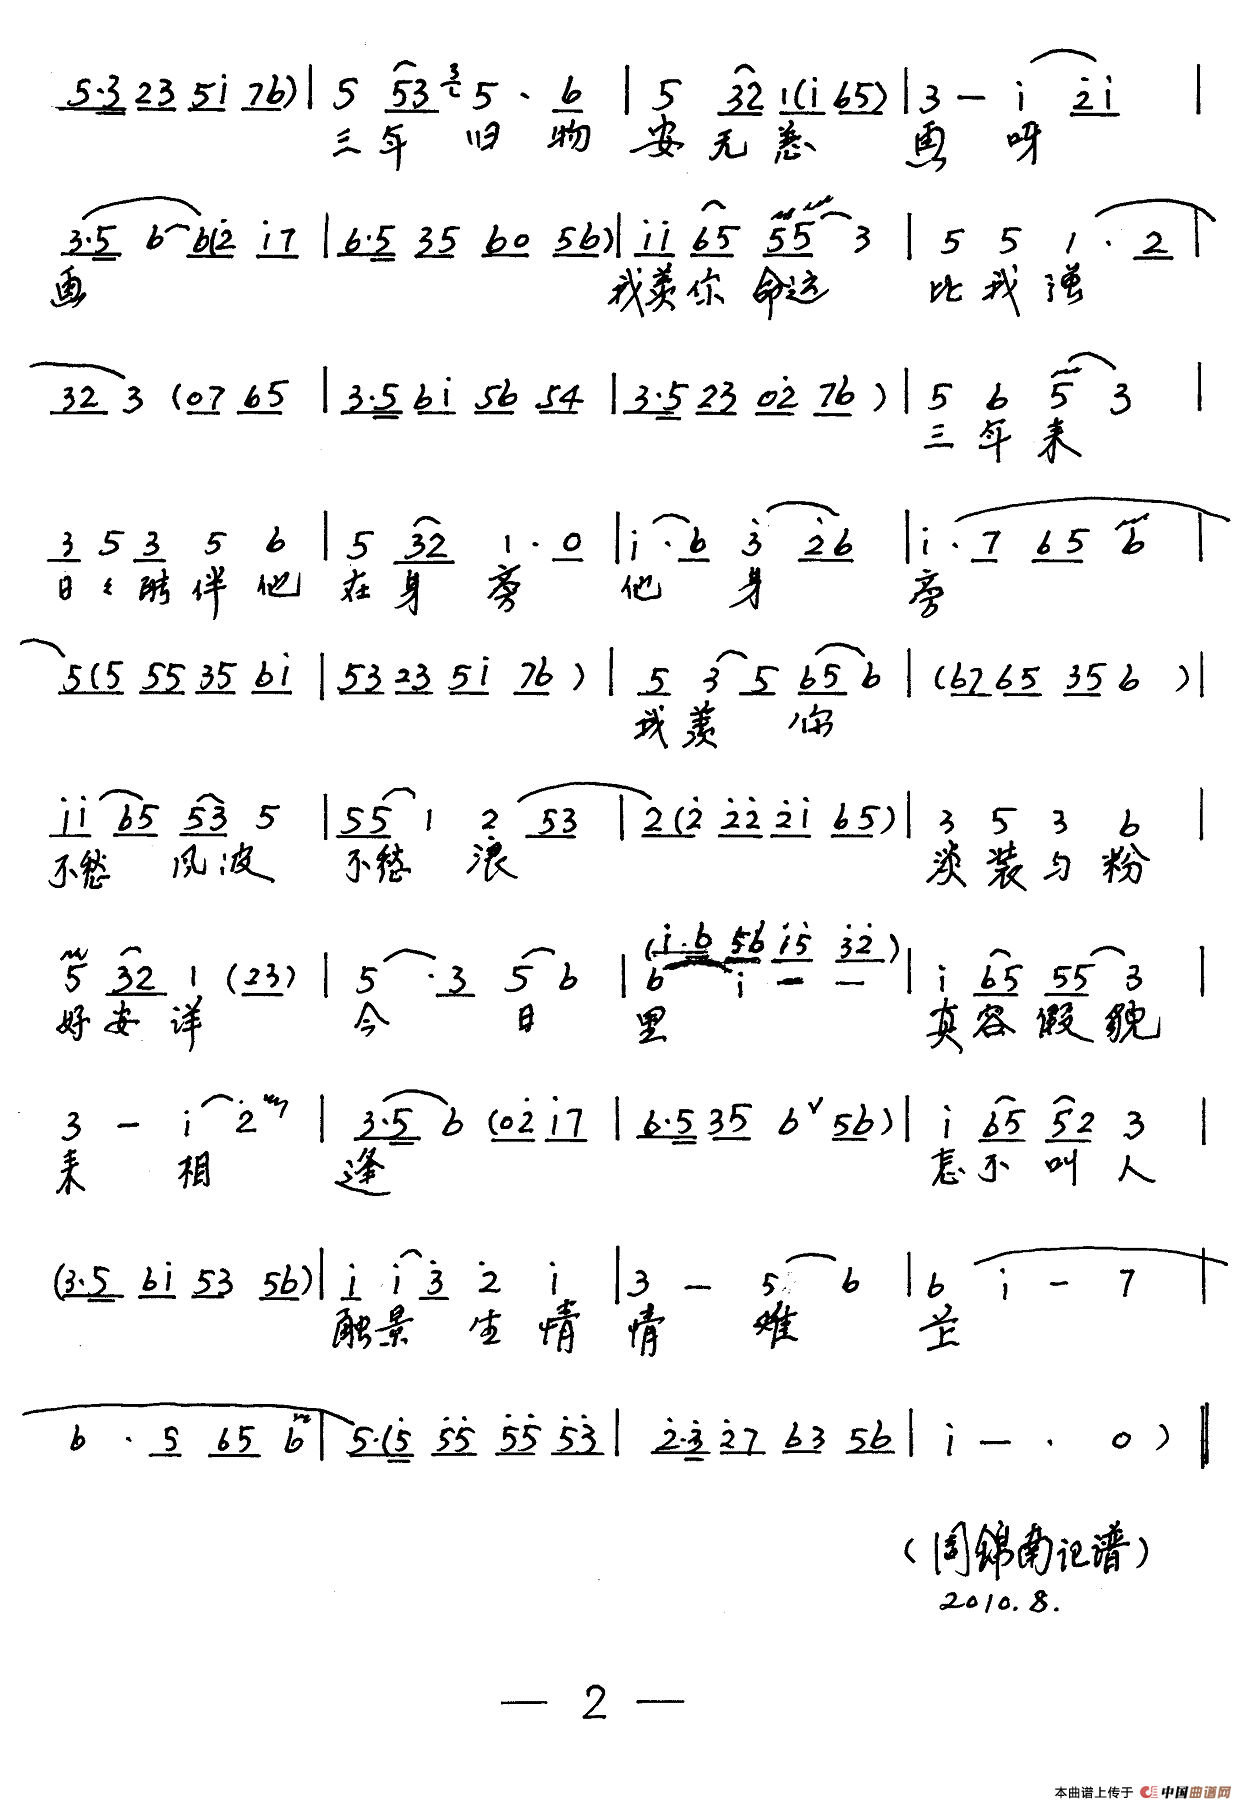 5·3 23 5i 76) | 5 53 3 5 · 6 | 5 32 1(i 65) | 3 — i 2i |
三年旧物 安无恙 画呀
3·5 6 6(2 i7 | 6·5 35 60 56) | ii 65 55 3 | 5 5 1 · 2 |
画 我羡你命运 比我强
32 3 (07 65 | 3·5 6i 56 54 | 3·5 23 02 76) | 5 6 5 3 |
三年来
3 5 3 5 6 | 5 32 1 · 0 | i · 6 3 26 | i · 7 65 6 |
日々 伴他 在身旁 他身旁
5(5 55 35 6i | 53 23 5i 76) | 5 3 5 65 6 | (67 65 35 6) |
我羡 你
ii 65 53 5 | 55 1 2 53 | 2(2 22 2i 65) | 3 5 3 6 |
不愁风波 不愁浪 淡装与粉
(i·6 56 i5 32)
5 32 1 (23) | 5 · 3 5 6 | 6 i — — | i 65 55 3 |
好安详 今日里 真容假貌
3 — i 2 | 3·5 6 (02 i7 | 6·5 35 6 56) | i 65 52 3 |
来相逢 怎不叫人
(3·5 6i 53 56) | i i 3 2 i | 3 — 5 6 | 6 i — 7 |
触景生情 情难
6 · 5 65 6 | 5·(5 55 55 53 | 2·3 27 63 56 | i — · 0 ) ||
(周锦南记谱)
2010.8.
— 2 —
本曲谱上传于 中国曲谱网